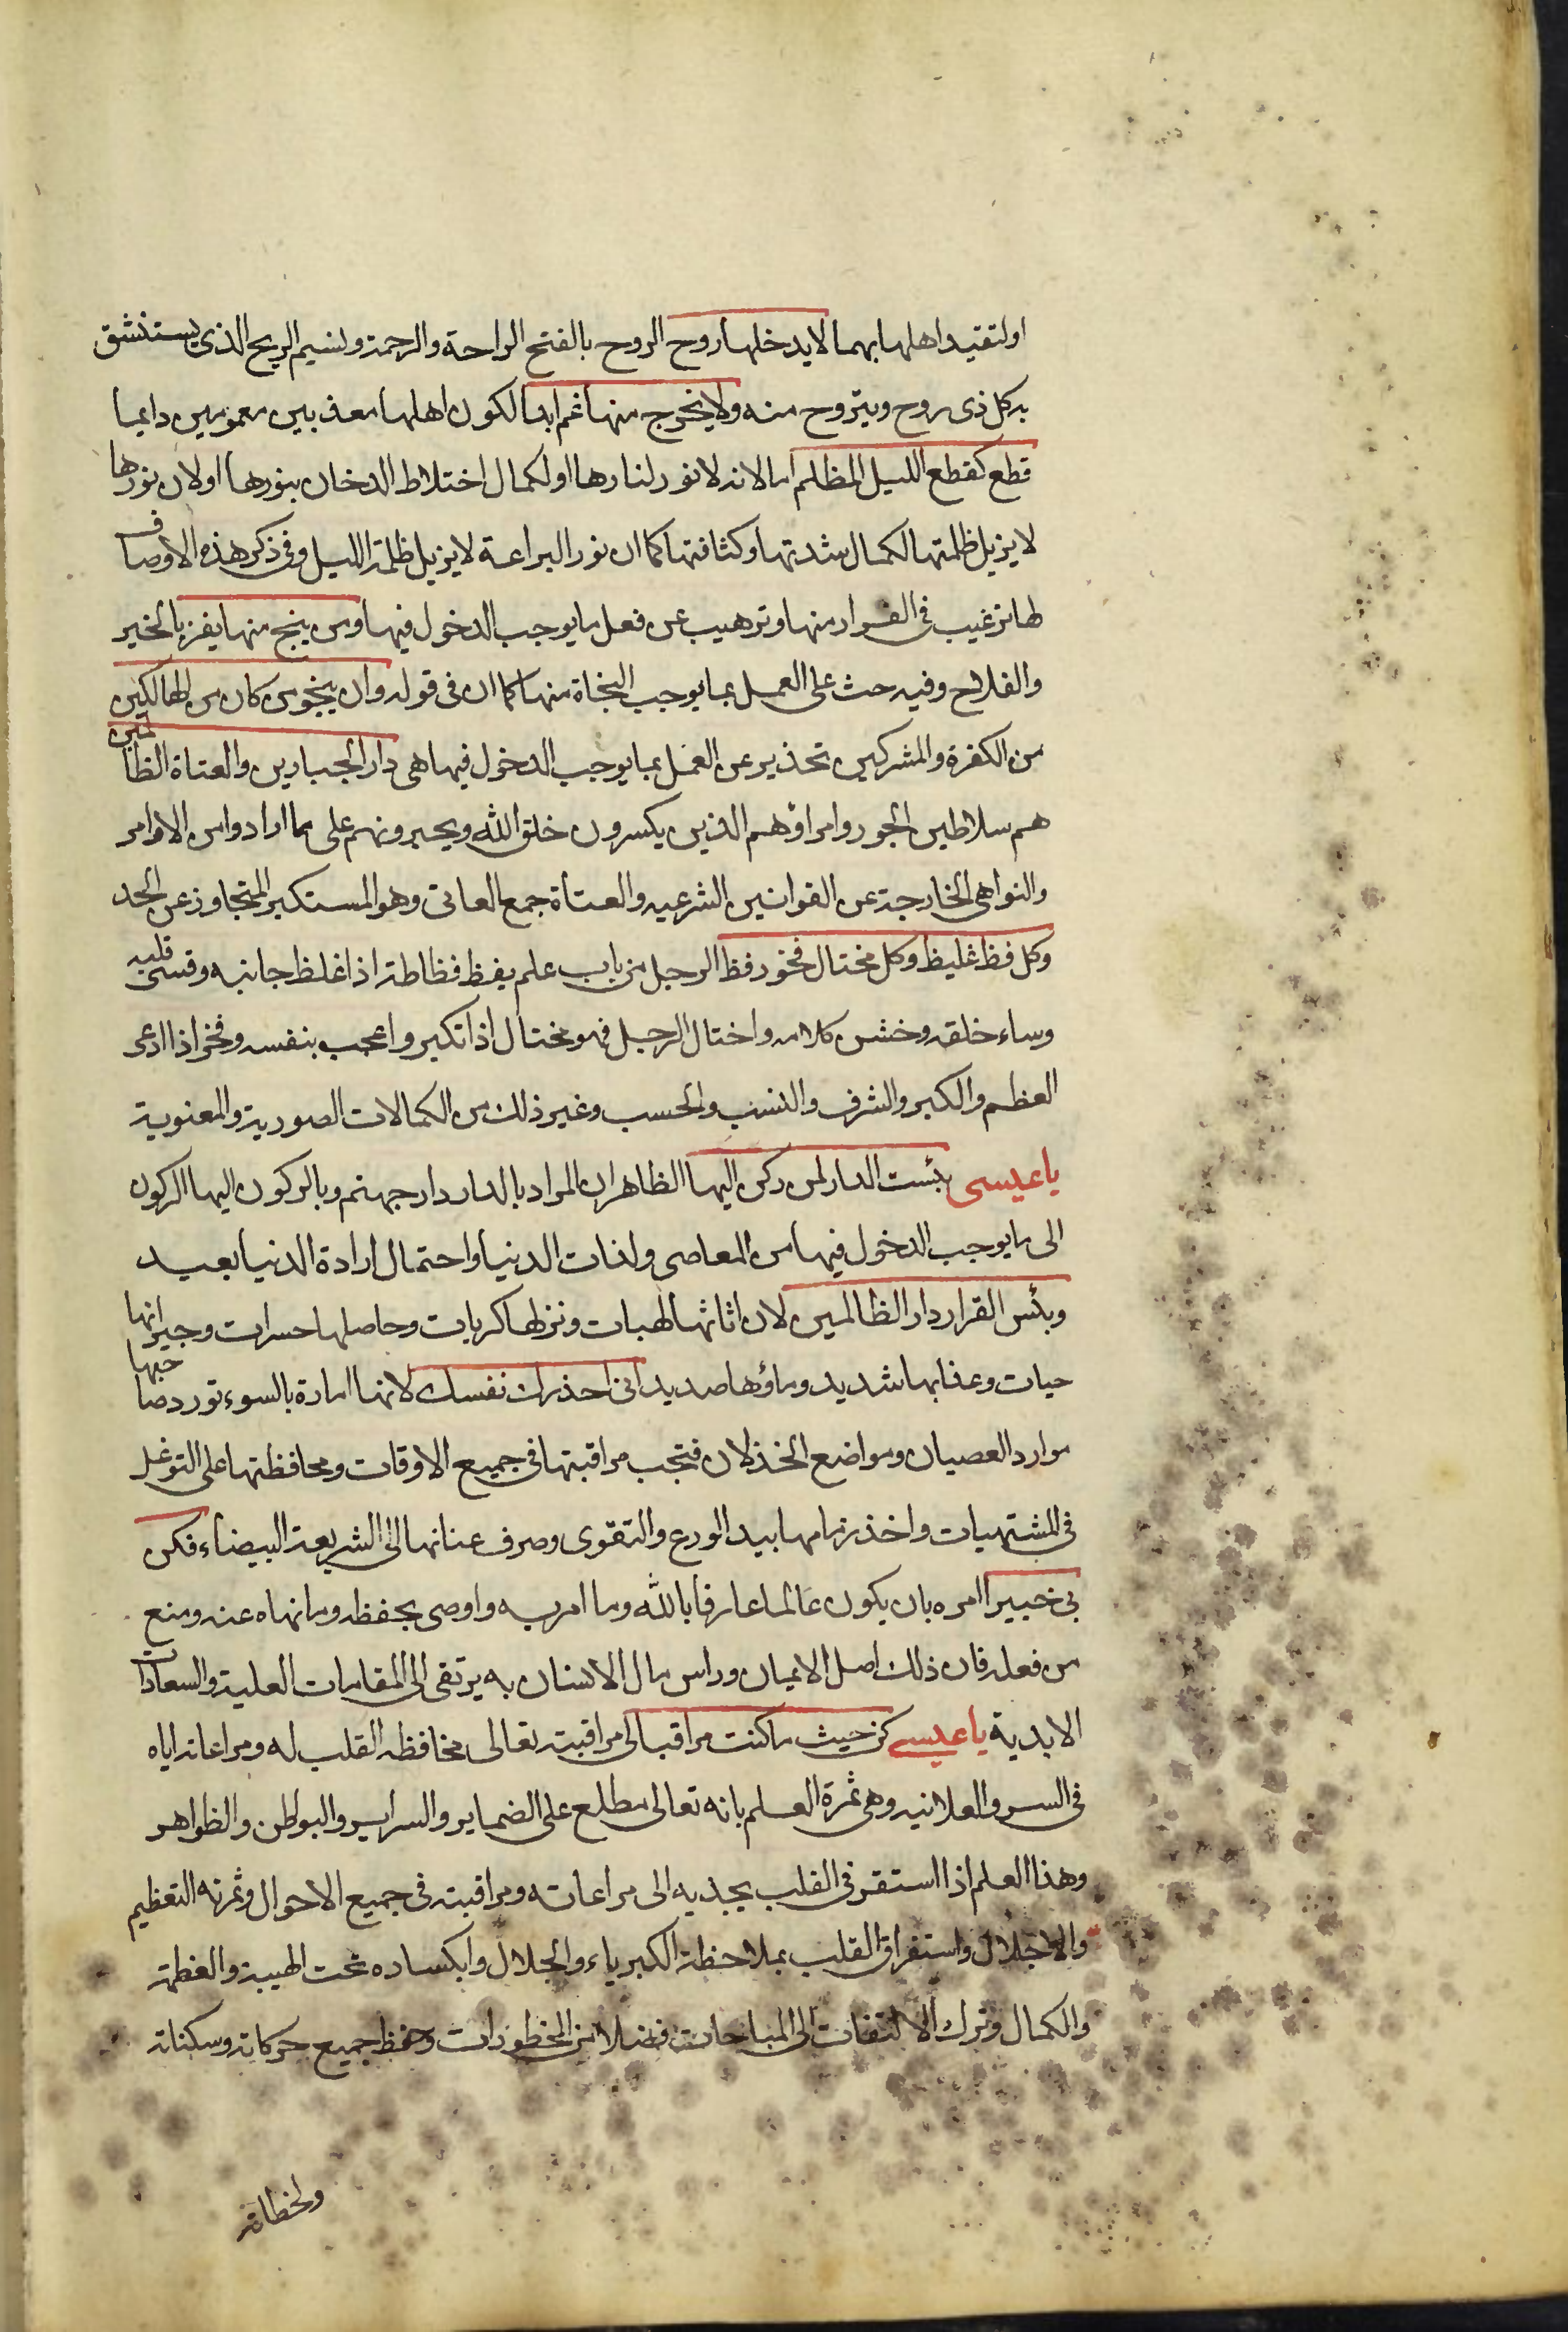 اولتقيد اهلها بهما لا يدخلها روح الروح بالفتح الراحة والرحمة ونسيم الريح الذى يستنشق
به كل ذى روح ويتروح منه ولا يخرج منها غم ابدا لكون اهلها معذبين مغمومين دايما
قطع كقطع الليل المظلم اما لانه لا نور لنارها او لكمال اختلاط الدخان بنورها او لان نورها
لا يزيل ظلمتها لكمال شدتها وكثافتها كما ان نور اليراعة لا يزيل ظلمة الليل وفى ذكر هذه الاوصاف
لها ترغيب فى الفرار منها وترهيب عن فعل ما يوجب الدخول فيها ومن ينج منها يفز بالخير
والفلاح وفيه حث على العمل بما يوجب النجاة منها كما ان فى قوله وان ينجو من كان من الهالكين
من الكفرة والمشركين تحذير عن العمل بما يوجب الدخول فيها هى دار الجبارين والعتاة الظالمين
هم سلاطين الجور وامراؤهم الذين يكسرون خلق الله ويجبرونهم على ما ارادوا من الاوامر
والنواهى الخارجة عن القوانين الشرعيه والعتاة جمع العاتى وهو المستكبر المتجاوز عن الحد
وكل فظ غليظ وكل مختال فخور فظ الرجل من باب علم يفظ فظاظة اذا غلظ جانبه وقسى قلبه
وساء خلقه وخشن كلامه واختال الرجل فهو مختال اذا تكبر واعجب بنفسه وفخر اذا ادعى
العظم والكبر والشرف والنسب والحسب وغير ذلك من الكمالات الصورية والمعنوية
يا عيسى بئست الدار لمن ركن اليها الظاهر ان المراد بالدار دار جهنم وبالركون اليها الركون
الى ما يوجب الدخول فيها من المعاصى ولذات الدنيا واحتمال ارادة الدنيا بعيد
وبئس القرار دار الظالمين لان اثاثها لهبات ونزلها كربات وحاصلها حسرات وجيرانها
حيات وعذابها شديد وماؤها صديد انى احذرك نفسك لانها امارة بالسوء تورد صاحبها
موارد العصيان ومواضع الخذلان فتجب مراقبتها فى جميع الاوقات ومحافظتها على التوغل
فى المشتهيات واخذ زمامها بيد الورع والتقوى وصرف عنانها الى الشريعة البيضاء فكن
بى خبيرا امره بان يكون عالما عارفا بالله وما امر به واوصى بحفظه وما نهاه عنه ومنع
من فعله فان ذلك اصل الايمان وراس مال الانسان به يرتقى الى المقامات العلية والسعادات
الابدية يا عيسى كن حيث ما كنت مراقبا لى مراقبته تعالى محافظة القلب له ومراعاته اياه
فى السر والعلانيه وهى ثمرة العلم بانه تعالى مطلع على الضماير والسراير والبواطن والظواهر
وهذا العلم اذا استقر فى القلب يجذبه الى مراعاته ومراقبته فى جميع الاحوال وثمرته التعظيم
والاجلال واستغراق القلب بملاحظة الكبرياء والجلال وانكساره تحت الهيبة والعظمة
والكمال وترك الالتفات الى المباحات فضلا من المحظورات وحفظ جميع حركاته وسكناته
ولحظاته